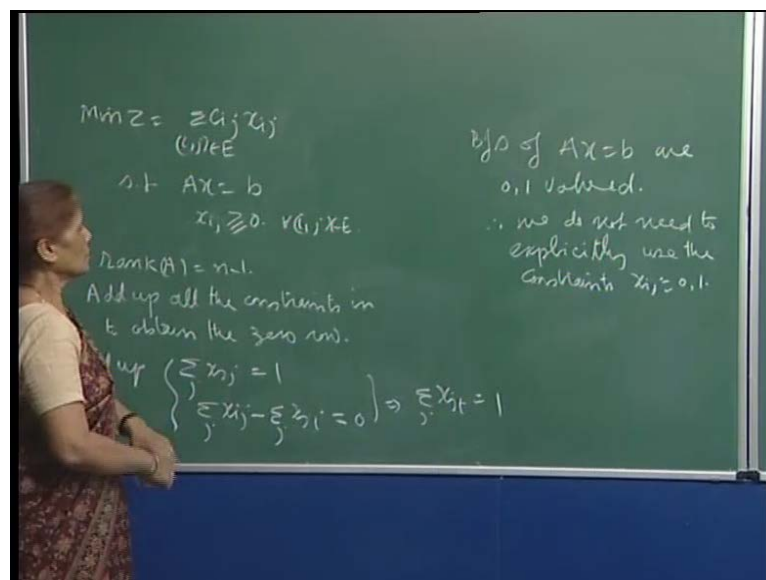 Min Z = Σ Cij xij
(i,j)∈E
s.t Ax = b
xij ≥ 0 ∀(i,j)∈E
Rank(A) = n-1.
Add up all the constraints in
to obtain the zero row.
up { Σj xsj = 1
Σj xij - Σj xji = 0 } ⇒ Σj xjt = 1
Bfs of Ax = b are
0,1 valued.
∴ we do not need to
explicitly use the
constraints xij = 0,1.